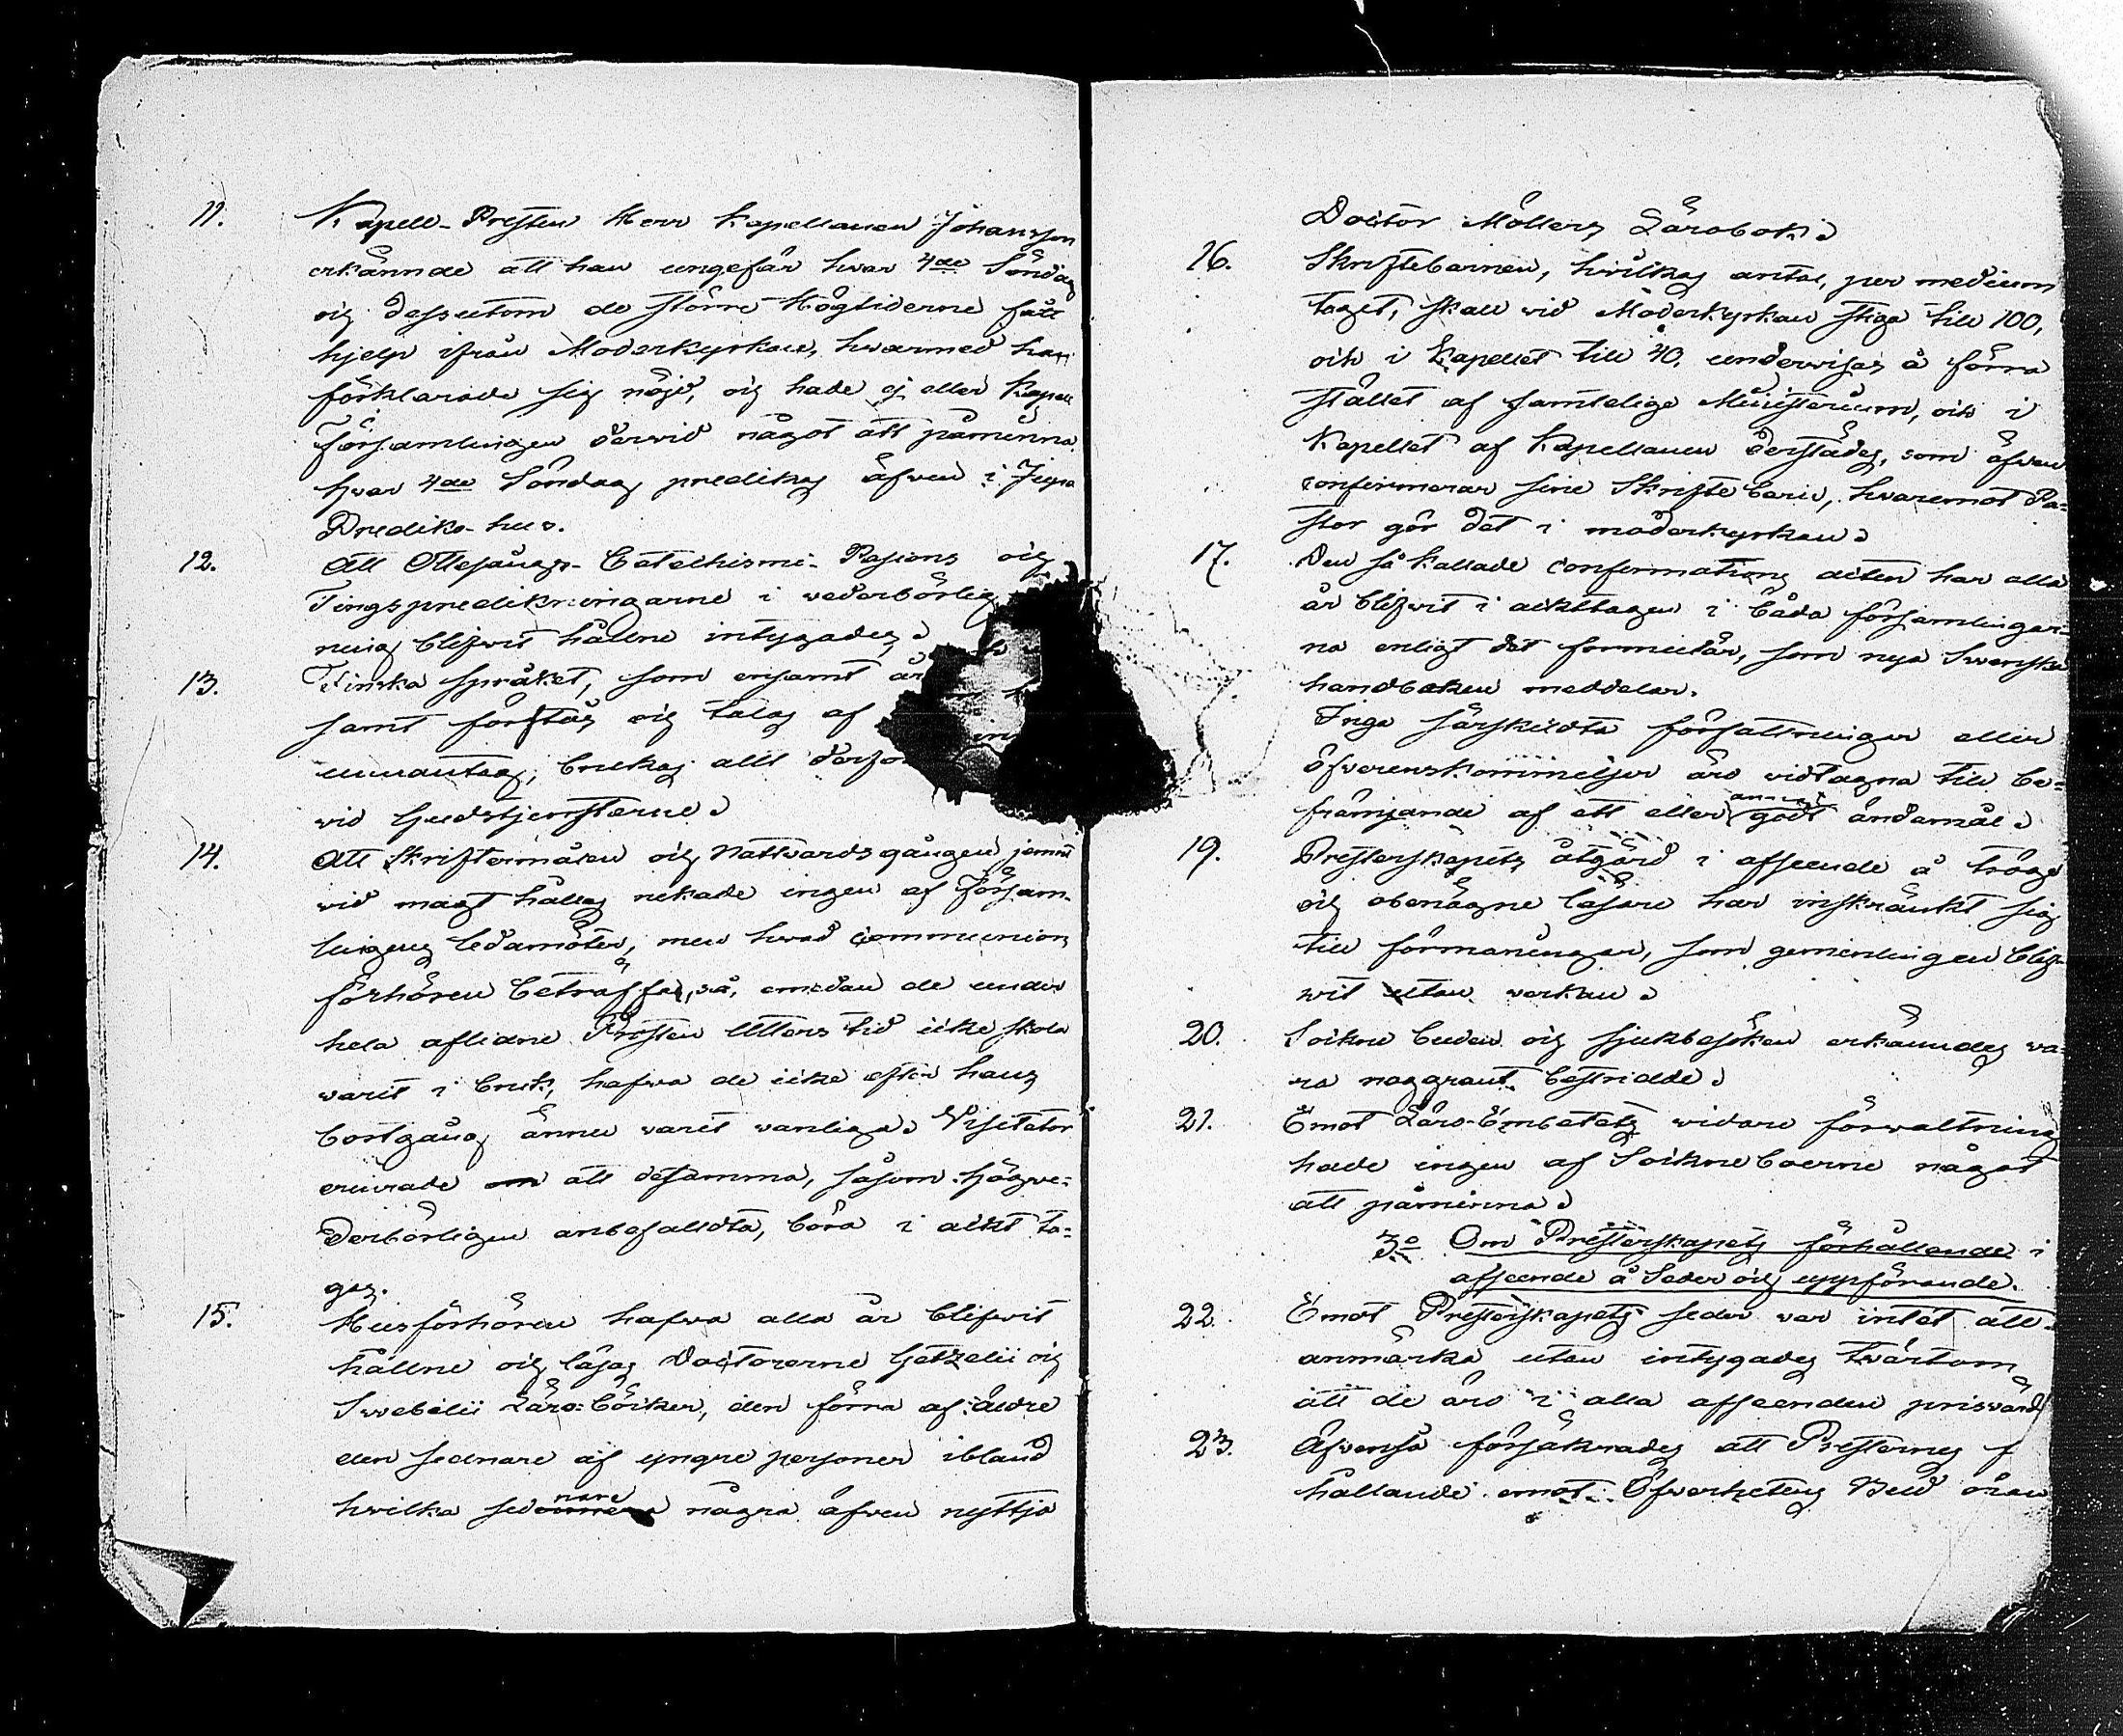 11. Kapell-Presten Herr Kapellanen Johansson
erkännde att han ungefär hvar 4de Söndag
och dessutom de större Högtiderne fått
hjelp ifrån Moderkyrkan, hwarmed han
förklarade sig nöjd, och hade ej eller Kapell
Församlingen derwid något att påminna.
hvar 4de Söndag predikas äfven i
Prediko-hus.
12. Att Ottesångs- Catechismi- Passions och
Tingspredikningarne i wederbörlig
ning blifwit hållne intygades.
13. Finska språket, som ensamt är
samt förstås och talas af
innantag, brukas allt derför
vid Gudstjensterne.
14. Att Skriftermålen och Nattvardsgången jemnt
vid magt hållas nekade ingen af Försam-
lingens ledamöter, men hvad communions
förhören beträffar, så, emedan de under
hela aflidne Prosten Utters tid icke skola
varit i bruk, hafwa de icke efter hans
bortgång ännu varit vanliga. Visitator
erinrade om att desamma, såsom högwe-
derbörligen anbefalldta, böra i ackt ta-
gas.
15. Husförhören hafwa alla år blifwit
hållne och läsas Doctorerne Getzelii och
Swebelii Läro-böcker, den förra af äldre
den sednare af yngre personer ibland
hvilka sednare några äfven nyttja
Doctor Möllers Lärobok.
16. Skriftebarnen, hvilkas antal, per medium
taget, skall vid Moderkyrkan stiga till 100,
och i Kapellet till 40. underwisas å förra
stället af samtelige Ministerium, och i
Kapellet af Kapellanen derstädes, som äfven
confirmerar sine Skriftebarn, hvaremot Pa-
stor gör det i moderkyrkan.
17. Den så kallade Confirmations acten har alla
år blifwit i ackttagen i båda församlingar-
na enligt det formulär, som nya Swenska
handboken meddelar.
Inga särskildta författningar eller
öfwerenskommelser äro vidtagna till be-
främjande af ett eller annat godt ändamål.
19. Presterskapets åtgärd i afseende å tröge
och obenägne läsare har inskränkt sig
till förmaningar, som gemenligen blif-
wit utan verkan.
20. Sockne buden och sjukbesöken erkänndes va-
ra noggrant bestridde.
21. Emot Läro-Embetets widare förwaltning
hade ingen af Sockneboerne något
att påminna.
3o Om Presterskapets förhållande i
afseende å Seder och uppförande.
22. Emot Presterskapets seder var intet att
anmärka utan intygades tvärtom
att de äro i alla afseenden prisvärd
23. Äfwenså försäkrades att Presternes f
hållande emot Öfwerhetens Bud äran